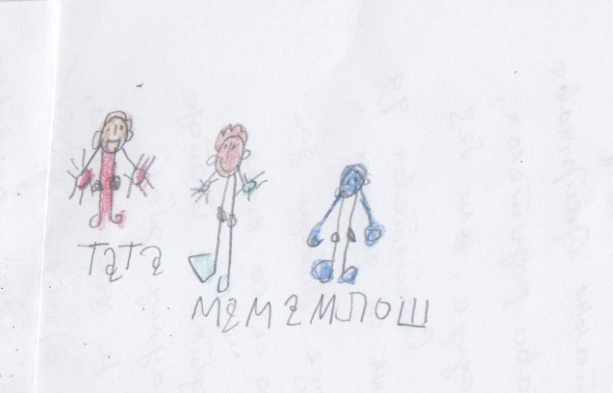 ТаТа
МаМа МЛОШ